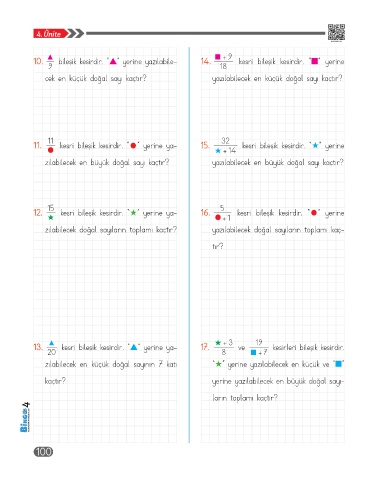 4. Ünite
10. ▲/9 bileşik kesirdir. "▲" yerine yazılabile-
cek en küçük doğal sayı kaçtır?
11. 11/● kesri bileşik kesirdir. "●" yerine ya-
zılabilecek en büyük doğal sayı kaçtır?
12. 15/★ kesri bileşik kesirdir. "★" yerine ya-
zılabilecek doğal sayıların toplamı kaçtır?
13. ▲/20 kesri bileşik kesirdir. "▲" yerine ya-
zılabilecek en küçük doğal sayının 7 katı
kaçtır?
14. ■ + 9/18 kesri bileşik kesirdir. "■" yerine
yazılabilecek en küçük doğal sayı kaçtır?
15. 32/★ + 14 kesri bileşik kesirdir. "★" yerine
yazılabilecek en büyük doğal sayı kaçtır?
16. 5/● + 1 kesri bileşik kesirdir. "●" yerine
yazılabilecek doğal sayıların toplamı kaç-
tır?
17. ★ + 3/8 ve 19/■ + 7 kesirleri bileşik kesirdir.
"★" yerine yazılabilecek en küçük ve "■"
yerine yazılabilecek en büyük doğal sayı-
ların toplamı kaçtır?
BİNGO 4
100